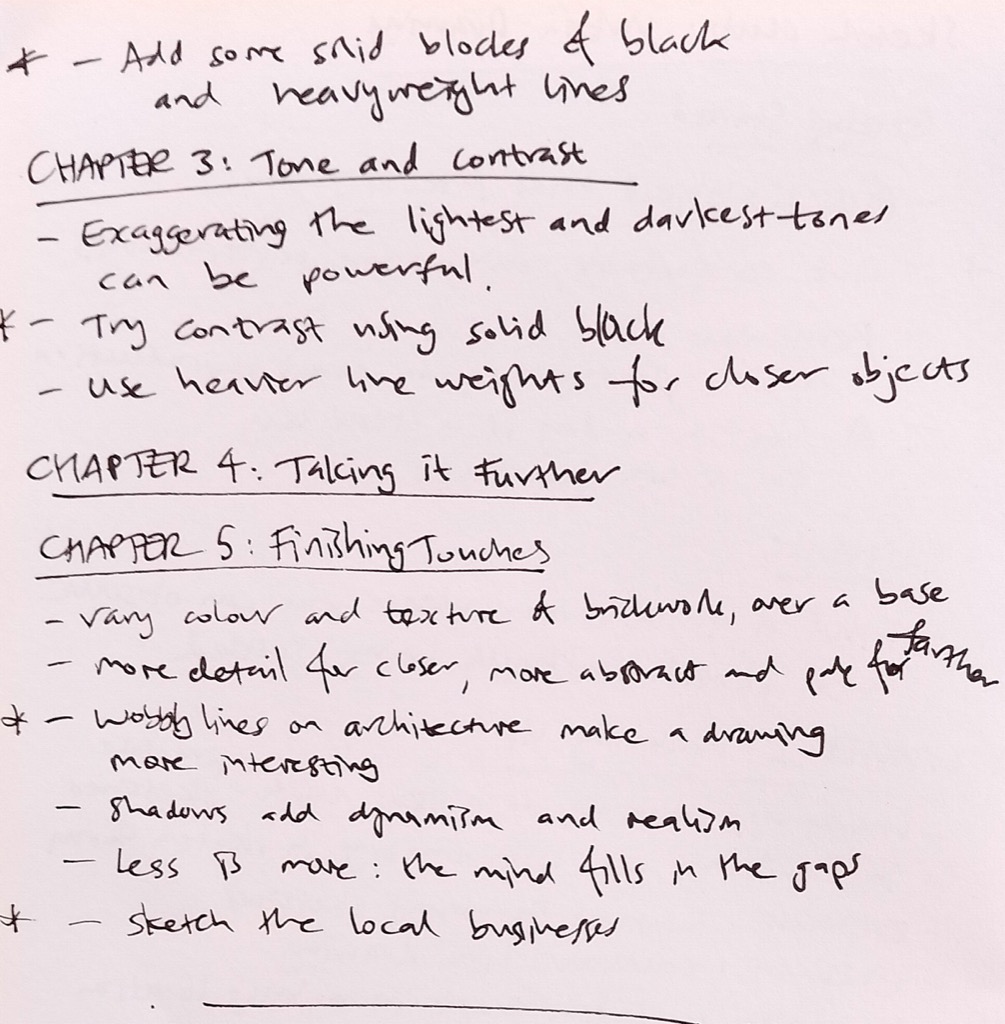 * - Add some solid blocks of black
and heavyweight lines
CHAPTER 3: Tone and contrast
- Exaggerating the lightest and darkest tones
can be powerful.
* - Try contrast using solid black
- use heavier line weights for closer objects
CHAPTER 4: Taking it Further
CHAPTER 5: Finishing Touches
- vary colour and texture of brickwork, over a base
- more detail for closer, more abstract and pale for farther
* - wobbly lines on architecture make a drawing
more interesting
- shadows add dynamism and realism
- Less is more: the mind fills in the gaps
* - sketch the local businesses